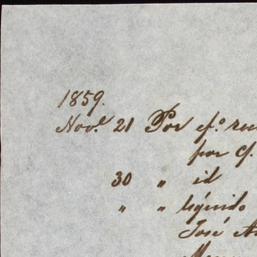 1859.
Nov.e 21 Por ef.o
por
30 " id
" " líquido
José